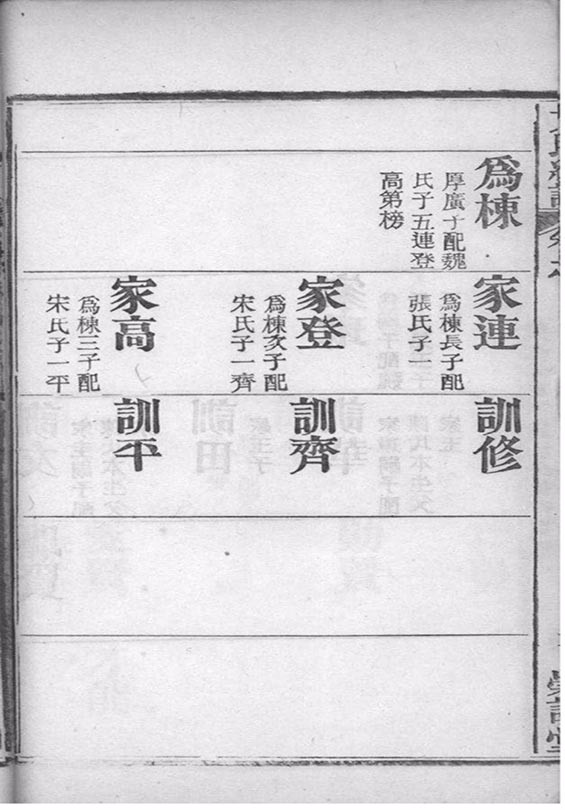 為棟
厚廣子配魏
氏子五連登
高第榜
家連
為棟長子配
張氏子一
家登
為棟次子配
宋氏子一齊
家高
為棟三子配
宋氏子一平
訓修
訓齊
訓平